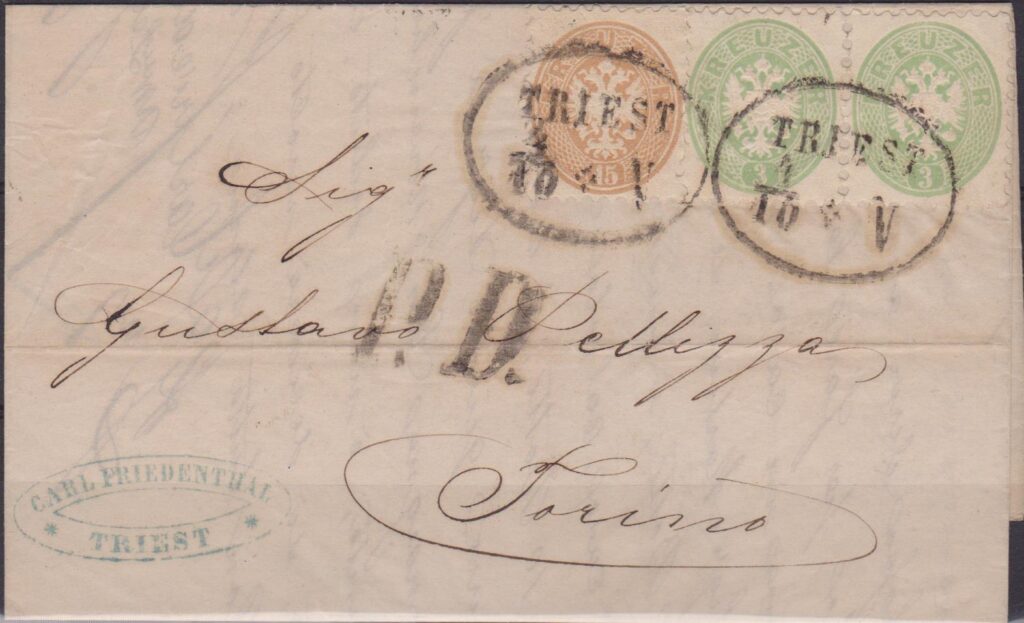 KREUZER
15
KREUZER
3
KREUZER
3
TRIEST
10 V
TRIEST
10 V
Sigr
P.D.
Gustavo Pellizza
Torino
CARL FRIEDENTHAL
* TRIEST *